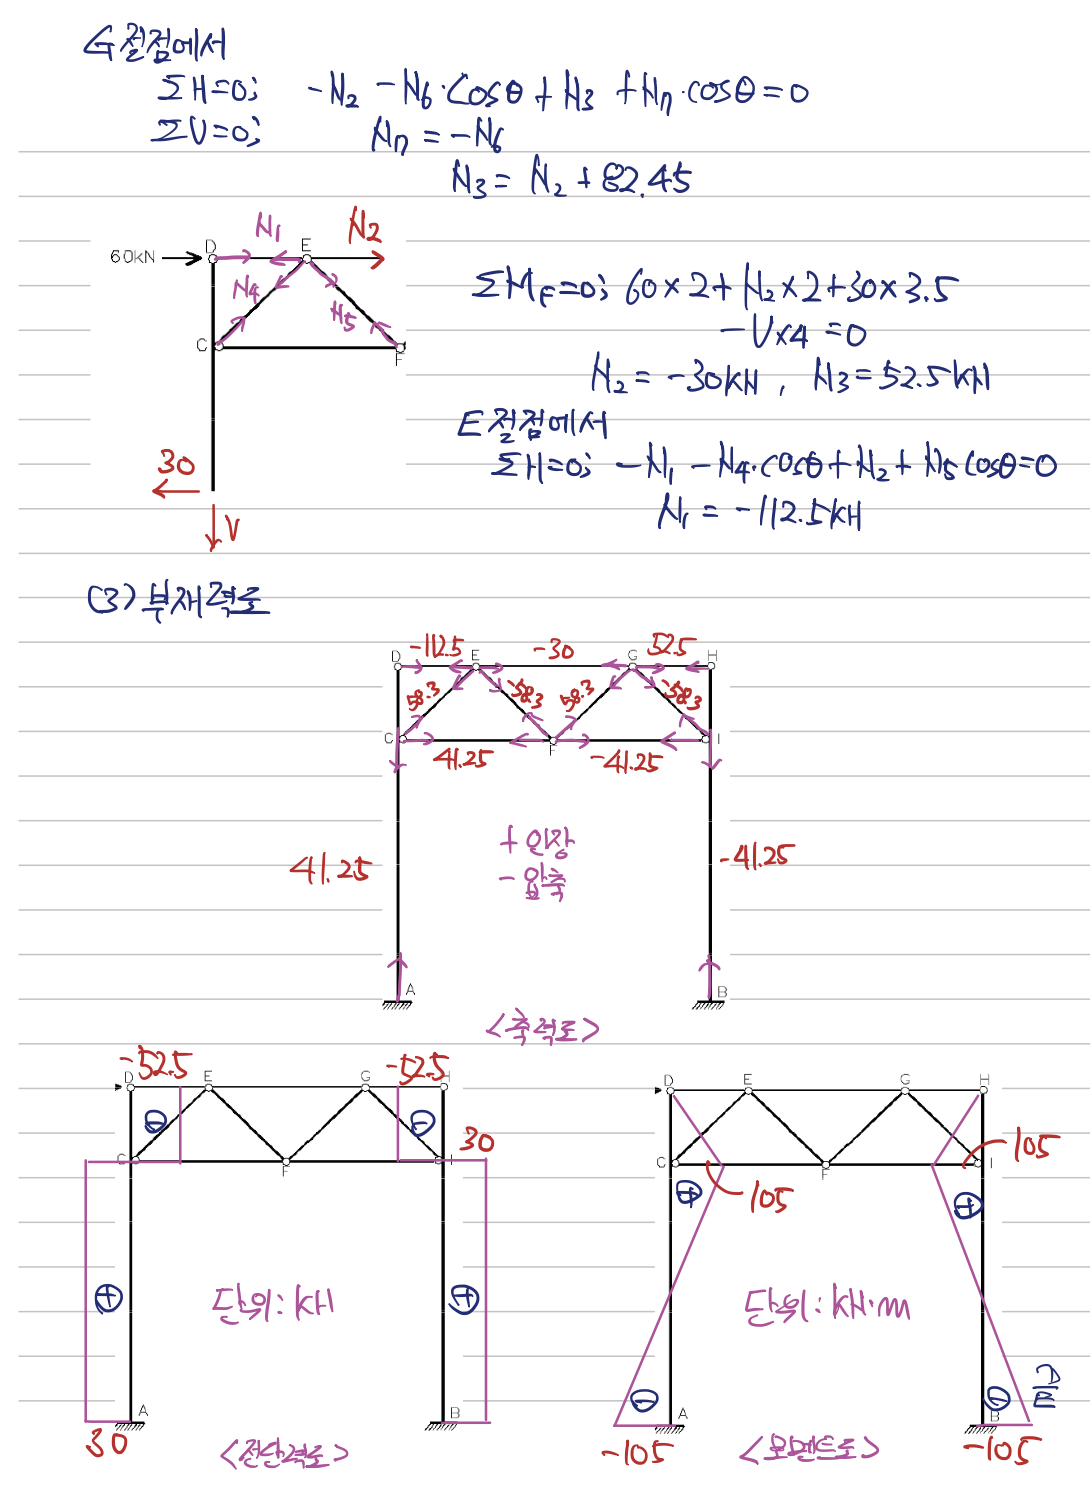 G절점에서
ΣH=0; -N₂ -N₆·cosθ +N₃ +N₇·cosθ=0
ΣV=0; N₇ = -N₆
N₃ = N₂ +82.45
N₁ N₂
60kN D E
N₄ N₅
C F
30
V
ΣM_F=0; 60×2+N₂×2+30×3.5
-V×4 =0
N₂ = -30kN , N₃=52.5kN
E절점에서
ΣH=0; -N₁ -N₄·cosθ+N₂+N₅cosθ=0
N₁ = -112.5kN
(3) 부재력도
D -112.5 E -30 G 52.5 H
58.3 -58.3 58.3 -58.3
C F I
41.25 -41.25
+ 인장
- 압축
41.25 -41.25
A B
<축력도>
-52.5 -52.5
D E G H
⊖ ⊖
30
C F I
⊕ ⊕
단위: kN
A B
30
<전단력도>
D E G H
105
C F I
105
⊕ ⊕
단위: kN·m
⊖ ⊖
A B
-105 -105
<모멘트도>
끝